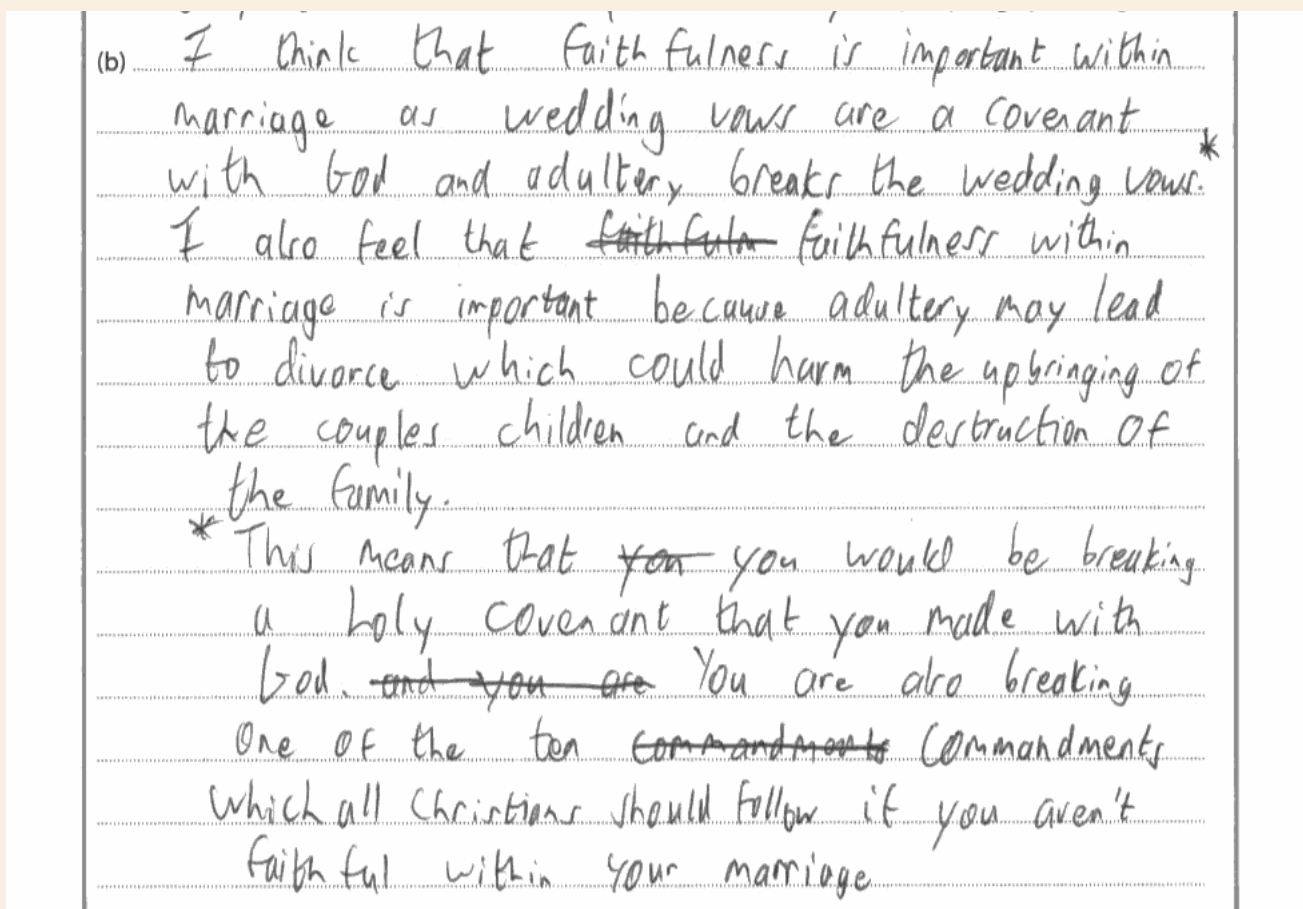 (b) I think that faithfulness is important within
marriage as wedding vows are a covenant *
with God and adultery breaks the wedding vows.
I also feel that faithfuln faithfulness within
marriage is important because adultery may lead
to divorce which could harm the upbringing of
the couples children and the destruction of
the family.
* This means that you you would be breaking
a holy covenant that you made with
God. and you are You are also breaking
one of the ten commandments Commandments
which all Christians should follow if you aren't
faithful within your marriage